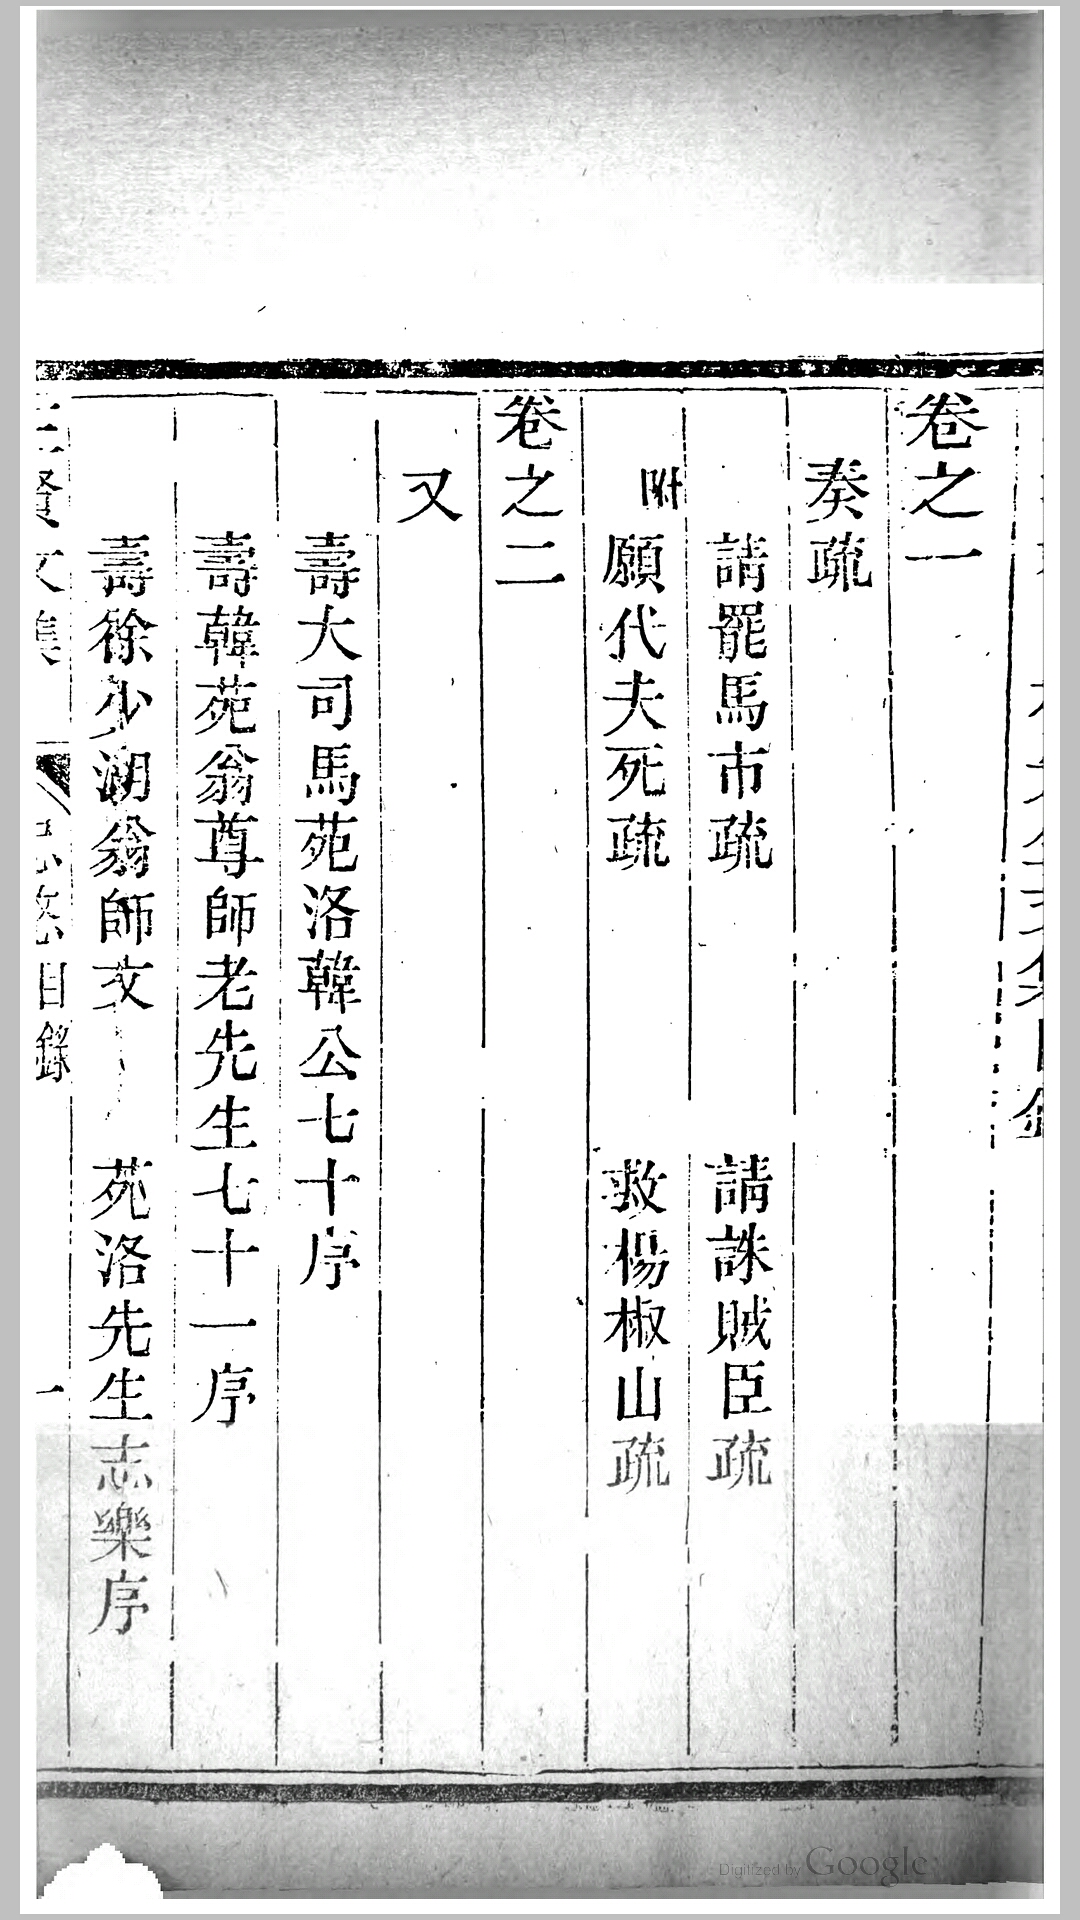 卷之一
奏疏
請罷馬市疏 請誅賊臣疏
附 願代夫死疏 救楊椒山疏
卷之二
又
壽大司馬苑洛韓公七十序
壽韓苑翁尊師老先生七十一序
壽徐少湖翁師文 苑洛先生志樂序
賢文集 目錄 一
Digitized by Google